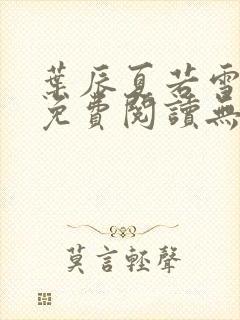 葉辰夏若雪
免費閱讀無
莫言輕聲